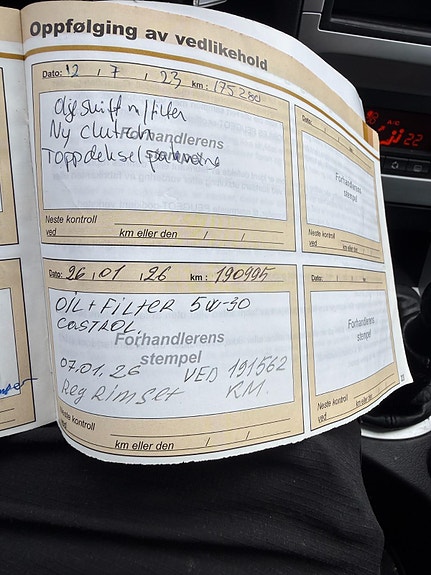 Oppfølging av vedlikehold
Dato: 12 , 7 , 23 km : 175280
Oljeskift m/filter
Ny Clutch
Forhandlerens
Toppdeksel pakning
Neste kontroll
ved km eller den / /
Forhandlerens
stempel
Neste kontroll
ved km eller den / /
Dato: 26 , 01 , 26 km : 190995
OIL + FILTER 5W-30
CASTROL.
Forhandlerens
stempel
07.01.26 VED 191562
Reg Rimset KM.
Neste kontroll
ved km eller den / /
Forhandlerens
stempel
Neste kontroll
ved km eller den / /
22